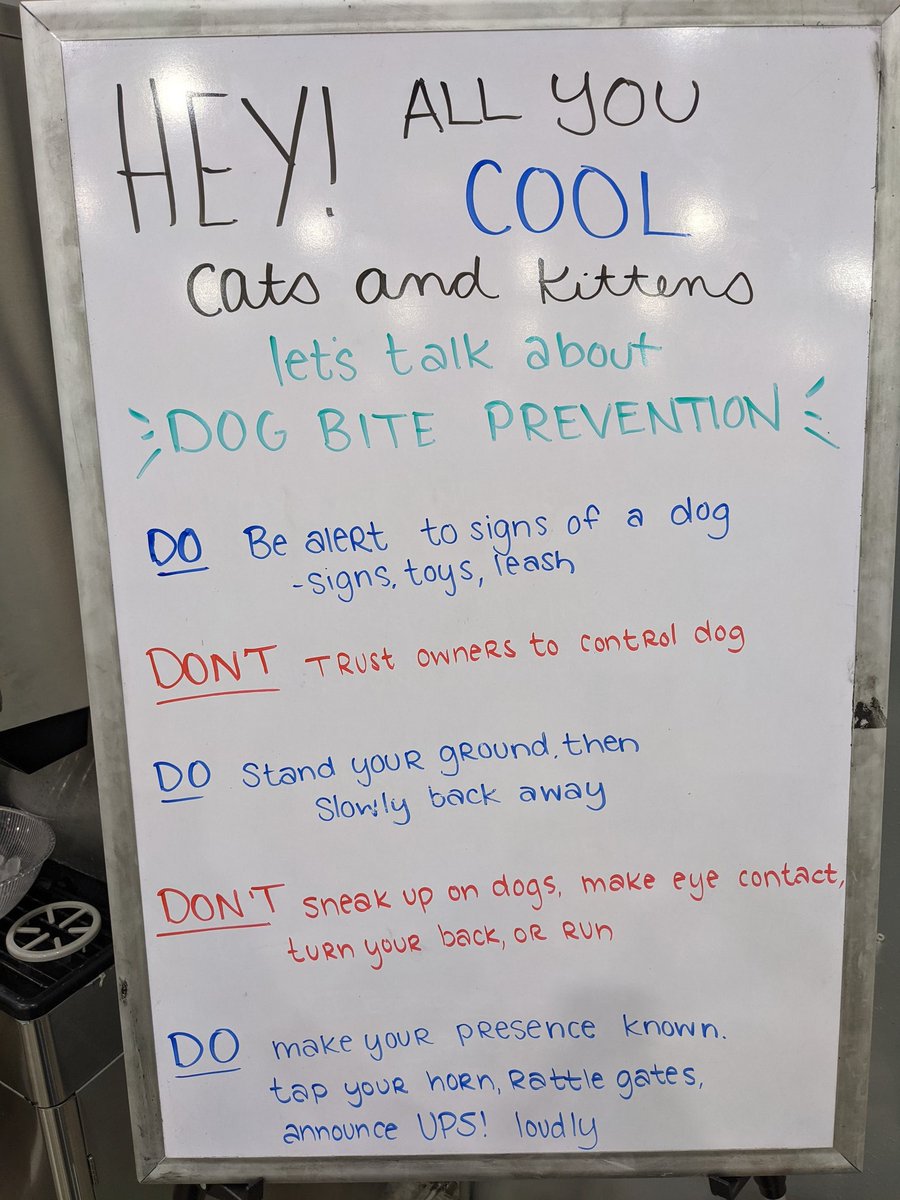 HEY! ALL YOU
COOL
Cats and Kittens
let's talk about
DOG BITE PREVENTION
DO Be alert to signs of a dog
-signs, toys, leash
DON'T Trust owners to control dog
DO Stand your ground, then
slowly back away
DON'T sneak up on dogs, make eye contact,
turn your back, or run
DO make your presence known.
tap your horn, rattle gates,
announce UPS! loudly